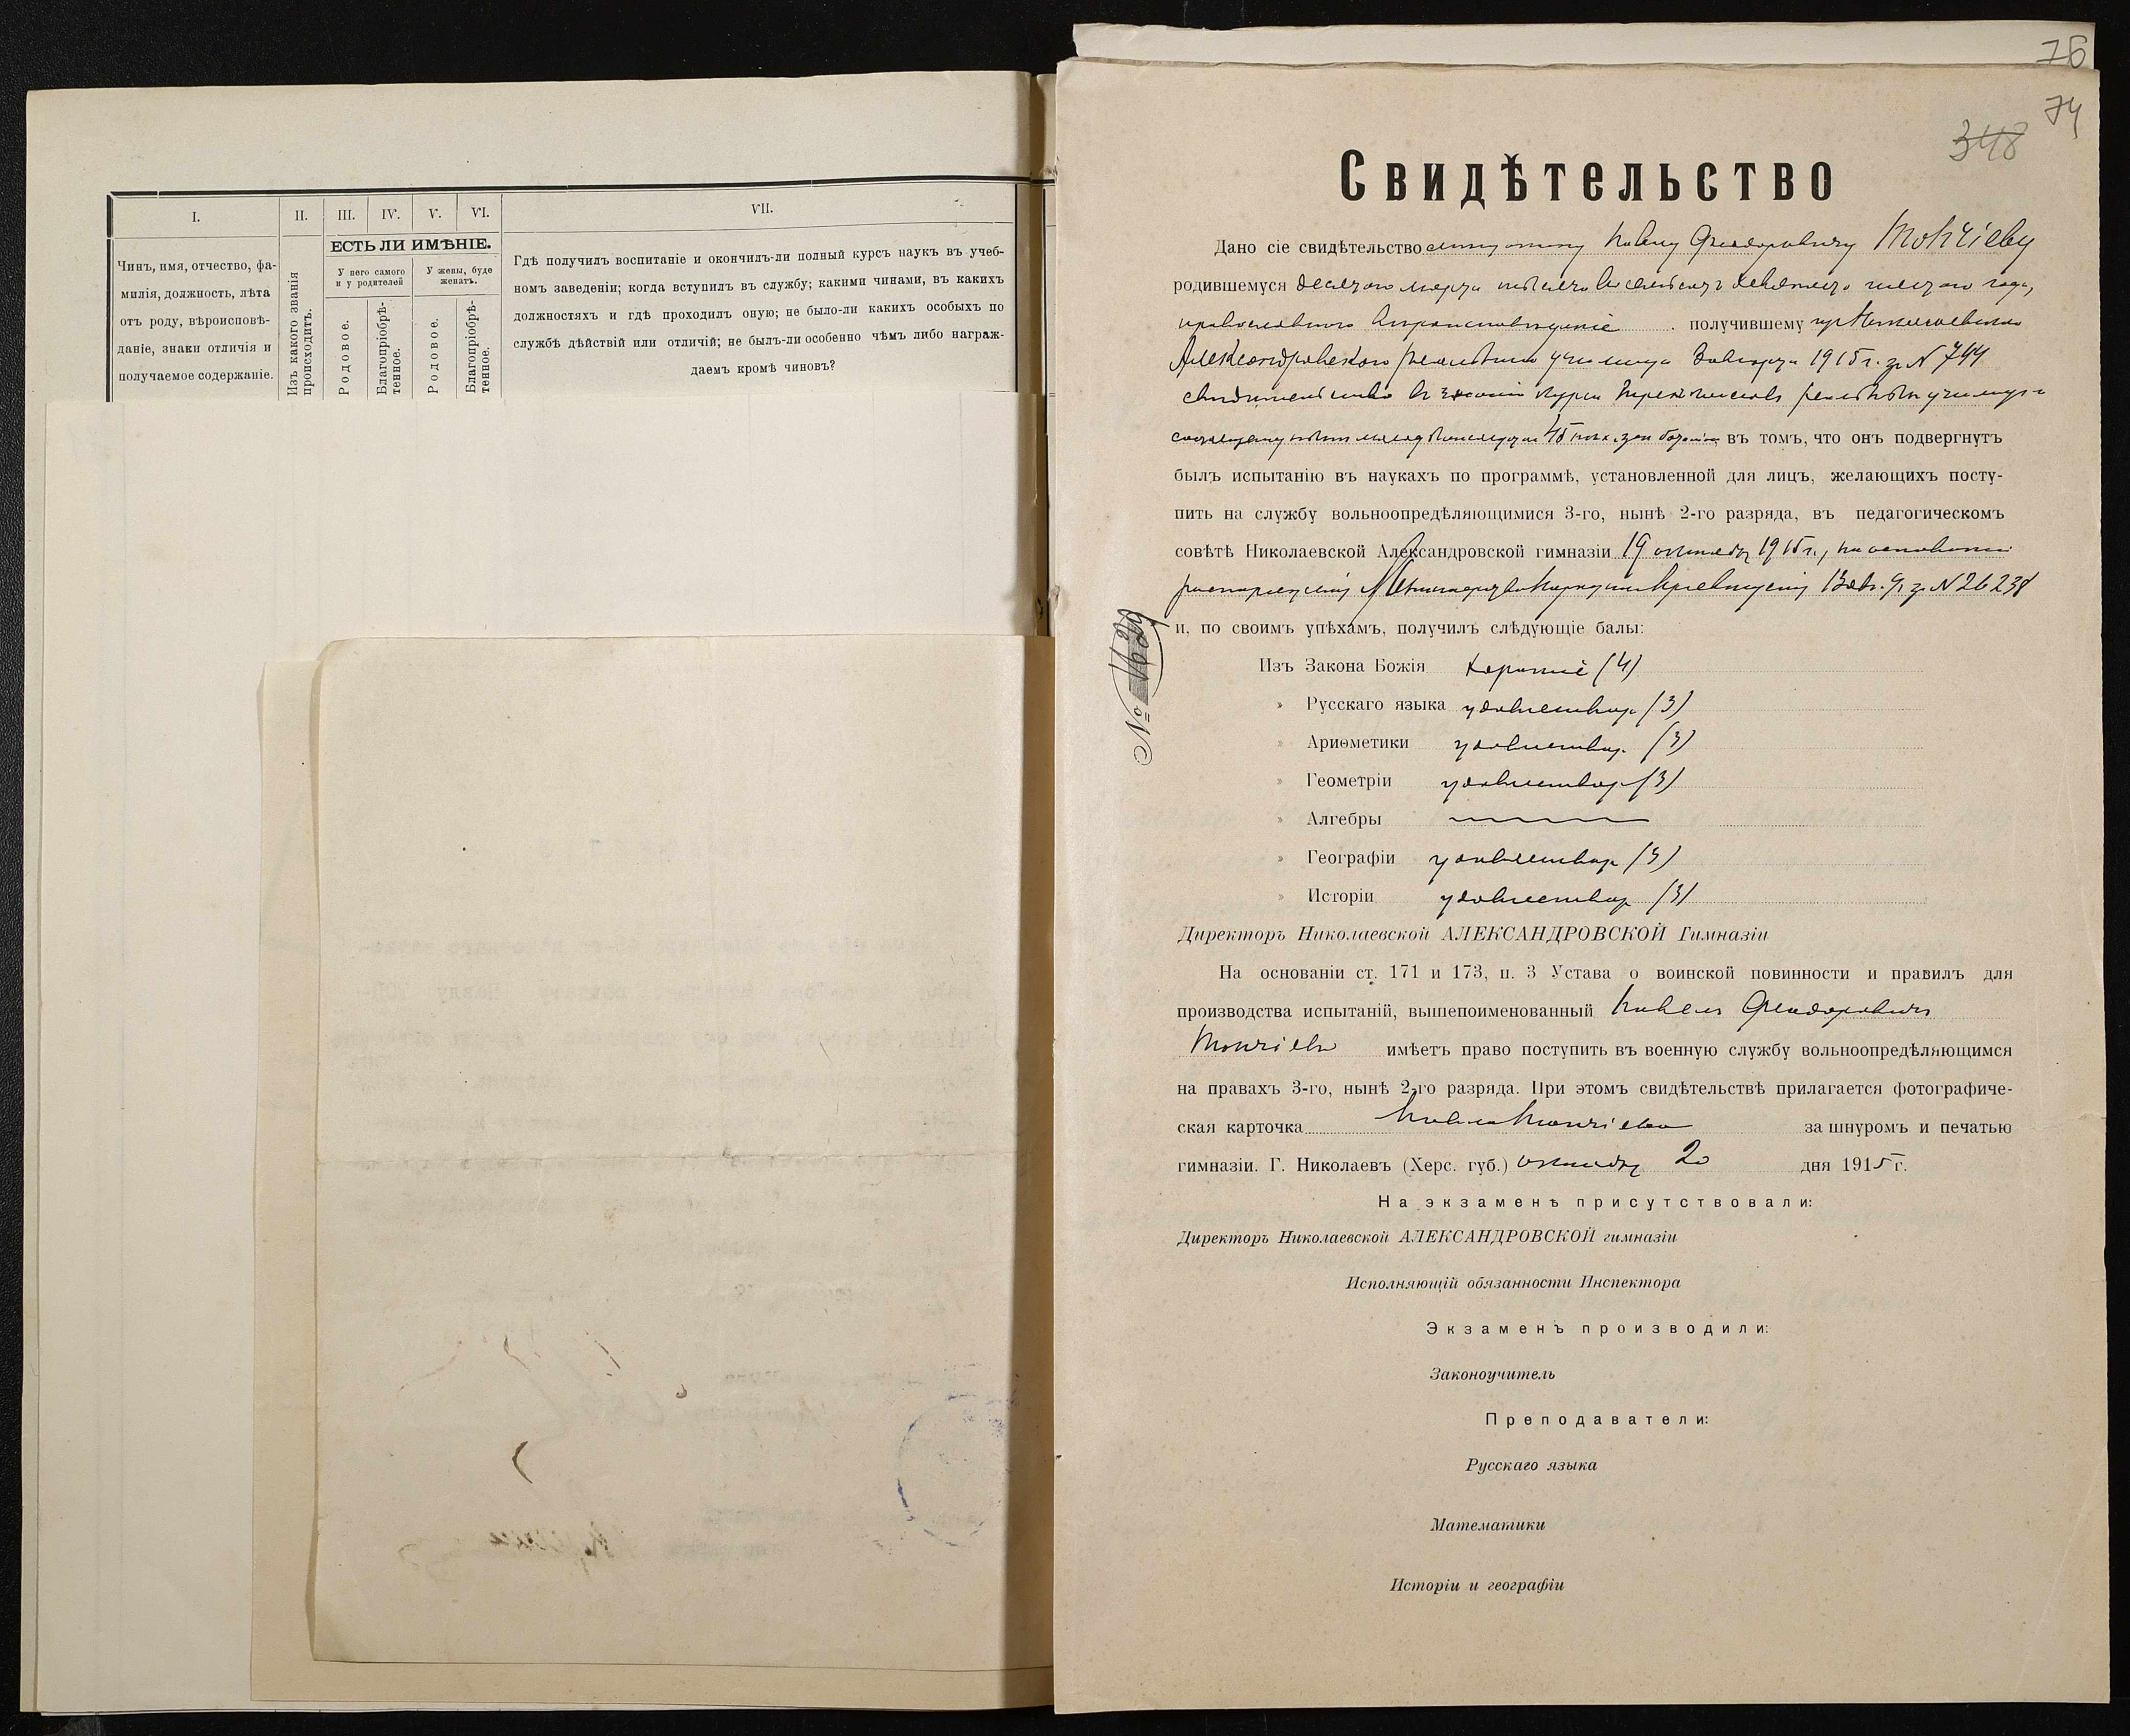 I.
II.
III.
IV.
V.
VI.
VII.
Чинъ, имя, отчество, фа-
милія, должность, лѣта
отъ роду, вѣроисповѣ-
даніе, знаки отличія и
получаемое содержаніе.
Изъ какого званія
происходитъ.
ЕСТЬ ЛИ ИМѢНІЕ.
У него самого
и у родителей
У жены, буде
женатъ.
Родовое.
Благопріобрѣ-
тенное.
Родовое.
Благопріобрѣ-
тенное.
Гдѣ получилъ воспитаніе и окончилъ-ли полный курсъ наукъ въ учеб-
номъ заведеніи; когда вступилъ въ службу; какими чинами, въ какихъ
должностяхъ и гдѣ проходилъ оную; не было-ли какихъ особыхъ по
службѣ дѣйствій или отличій; не былъ-ли особенно чѣмъ либо награж-
даемъ кромѣ чиновъ?
76
74
348
Свидѣтельство
Дано сіе свидѣтельство Павлу Феодоровичу
родившемуся десятого марта тысяча восемьсотъ девяносто года,
православного вѣроисповѣданія получившему изъ Николаевскаго
Александровскаго реальнаго училища 1915 г. за № 744
свидѣтельство въ знаніи курса трехъ классовъ реальныхъ училищъ
въ томъ, что онъ подвергнутъ
былъ испытанію въ наукахъ по программѣ, установленной для лицъ, желающихъ посту-
пить на службу вольноопредѣляющимися 3-го, нынѣ 2-го разряда, въ педагогическомъ
совѣтѣ Николаевской Александровской гимназіи 19 октября 1915 г., на основаніи
распоряженія Министерства Народнаго Просвѣщенія за № 26238
и, по своимъ упѣхамъ, получилъ слѣдующіе балы:
№ 1629
Изъ Закона Божія хорошіе (4)
» Русскаго языка удовлетвор. (3)
» Ариѳметики удовлетвор. (3)
» Геометріи удовлетвор. (3)
» Алгебры
» Географіи удовлетвор. (3)
» Исторіи удовлетвор. (3)
Директоръ Николаевской АЛЕКСАНДРОВСКОЙ Гимназіи
На основаніи ст. 171 и 173, п. 3 Устава о воинской повинности и правилъ для
производства испытаній, вышепоименованный Павелъ Феодоровичъ
имѣетъ право поступить въ военную службу вольноопредѣляющимся
на правахъ 3-го, нынѣ 2-го разряда. При этомъ свидѣтельствѣ прилагается фотографиче-
ская карточка Павла за шнуромъ и печатью
гимназіи. Г. Николаевъ (Херс. губ.) октября 20 дня 1915 г.
На экзаменѣ присутствовали:
Директоръ Николаевской АЛЕКСАНДРОВСКОЙ гимназіи
Исполняющій обязанности Инспектора
Экзаменъ производили:
Законоучитель
Преподаватели:
Русскаго языка
Математики
Исторіи и географіи